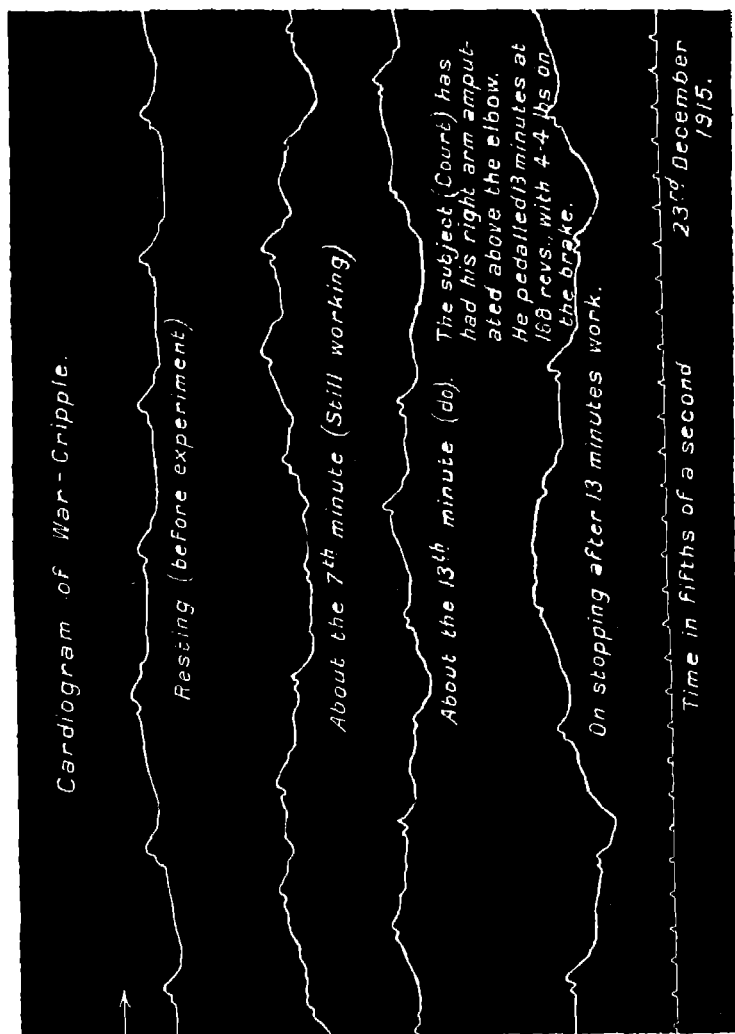 Cardiogram of War-Cripple.
Resting (before experiment)
About the 7th minute (Still working)
About the 13th minute (do).
The subject (Court) has
had his right arm amput-
ated above the elbow.
He pedalled 13 minutes at
188 revs., with 4·4 lbs on
the brake.
On stopping after 13 minutes work.
Time in fifths of a second
23rd December
1915.